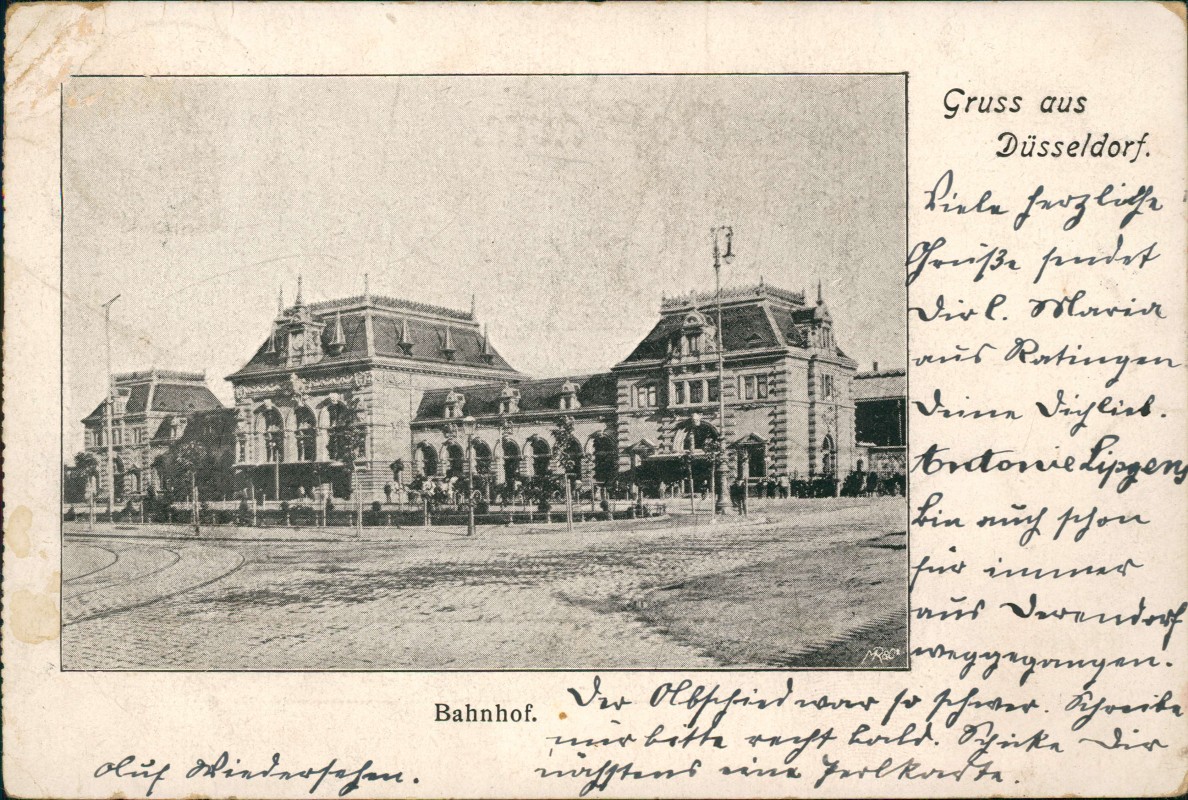 Gruss aus
Düsseldorf.
Viele herzliche
Grüße sendet
Dir l. Maria
aus Ratingen
Deine Dichlieb.
Antonie Lipgens
Bin auch schon
für immer
aus Derendorf
weggegangen.
Bahnhof.
Der Abschied war so schwer. Schreibe
mir bitte recht bald. Schicke Dir
nächstens eine Perlkarte.
Auf Wiedersehen.